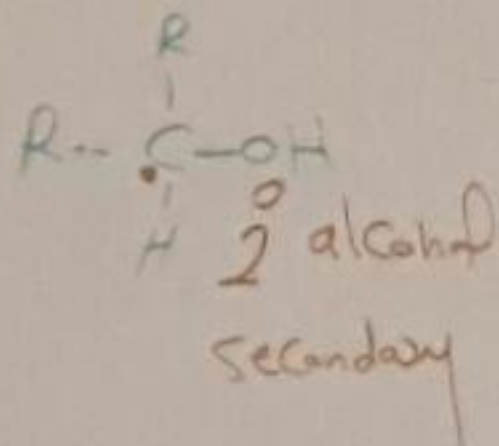 R
R-- C-OH
H 2° alcohol
secondary